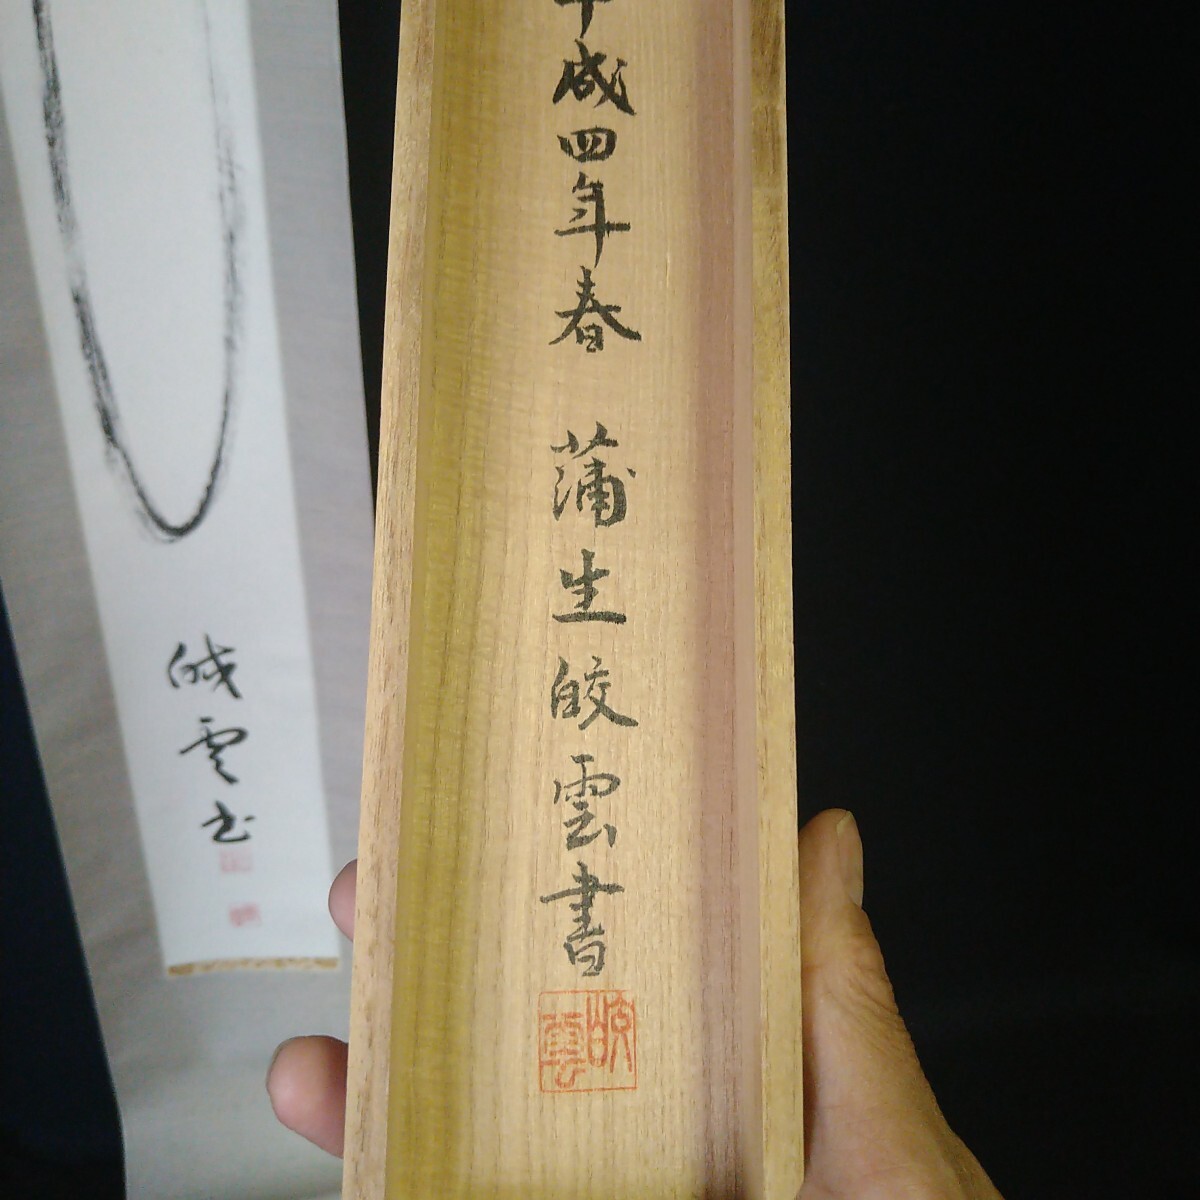 平成四年春 蒲生皎雲書
皎雲
皎雲书